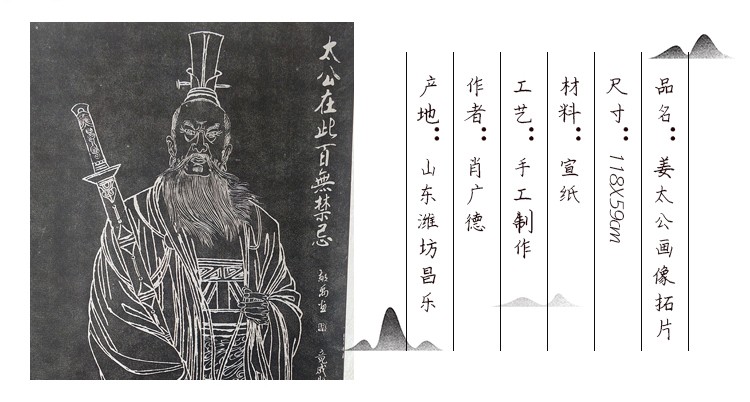 品名：姜太公画像拓片
尺寸：118X59cm
材料：宣纸
工艺：手工制作
作者：肖广德
产地：山东潍坊昌乐
太公在此百無禁忌